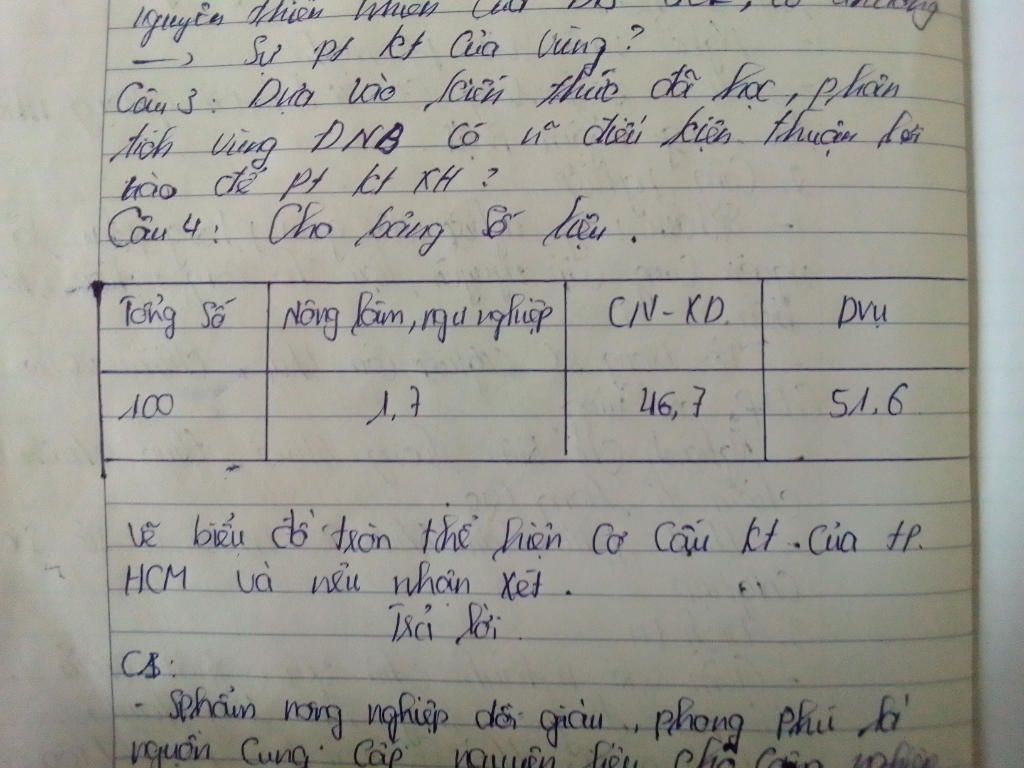 nguyên thiên nhiên của
→ Sự pt kt của vùng?
Câu 3: Dựa vào kiến thức đã học, phân
tích vùng ĐNB có n~ điều kiện thuận lợi
nào để pt kt XH?
Câu 4: Cho bảng số liệu.
Tổng số Nông lâm, ngư nghiệp CN-XD DVụ
100 1,7 46,7 51,6
Vẽ biểu đồ tròn thể hiện cơ cấu kt của tp.
HCM và nêu nhân xét.
Trả lời
C1:
- Sphẩm nong nghiệp dồi giàu, phong phú là
nguồn cung cấp nguyên liệu cho công nghiệp